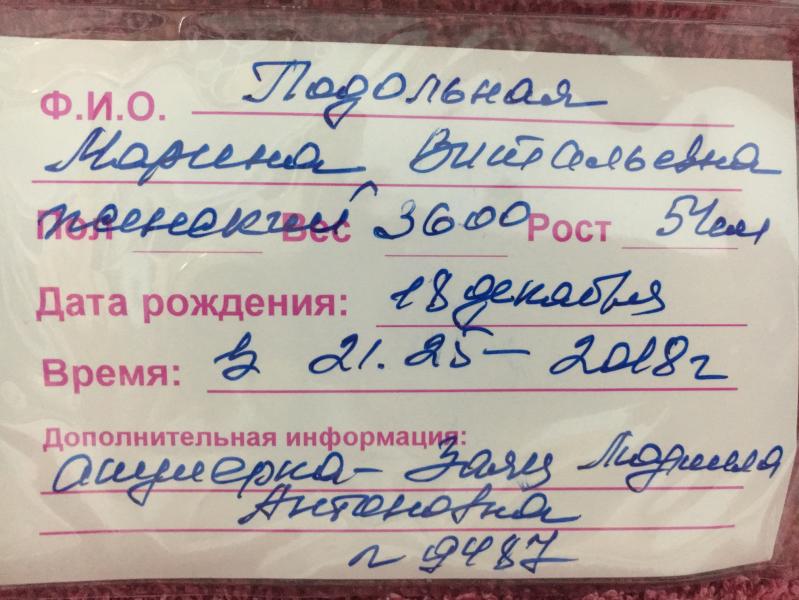 Ф.И.О. Подольная
Марина Витальевна
Пол женский Вес 3600 Рост 54см
Дата рождения: 18 декабря
Время: в 21.25 – 2018г
Дополнительная информация:
акушерка – Заяц Людмила
Антоновна
л 9487